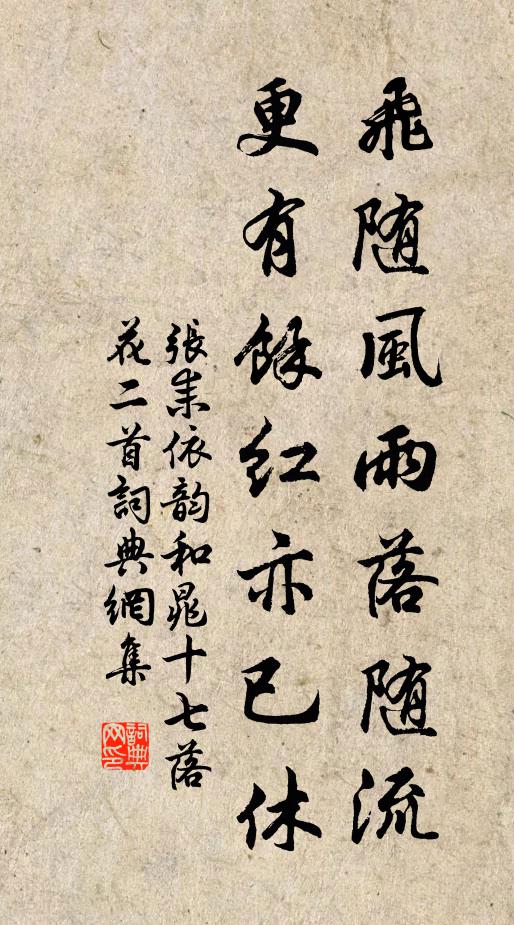 飛随風雨落随流
更有餘红亦已休
張耒依韵和晁十七落
花二首詞典網集
詞典网印